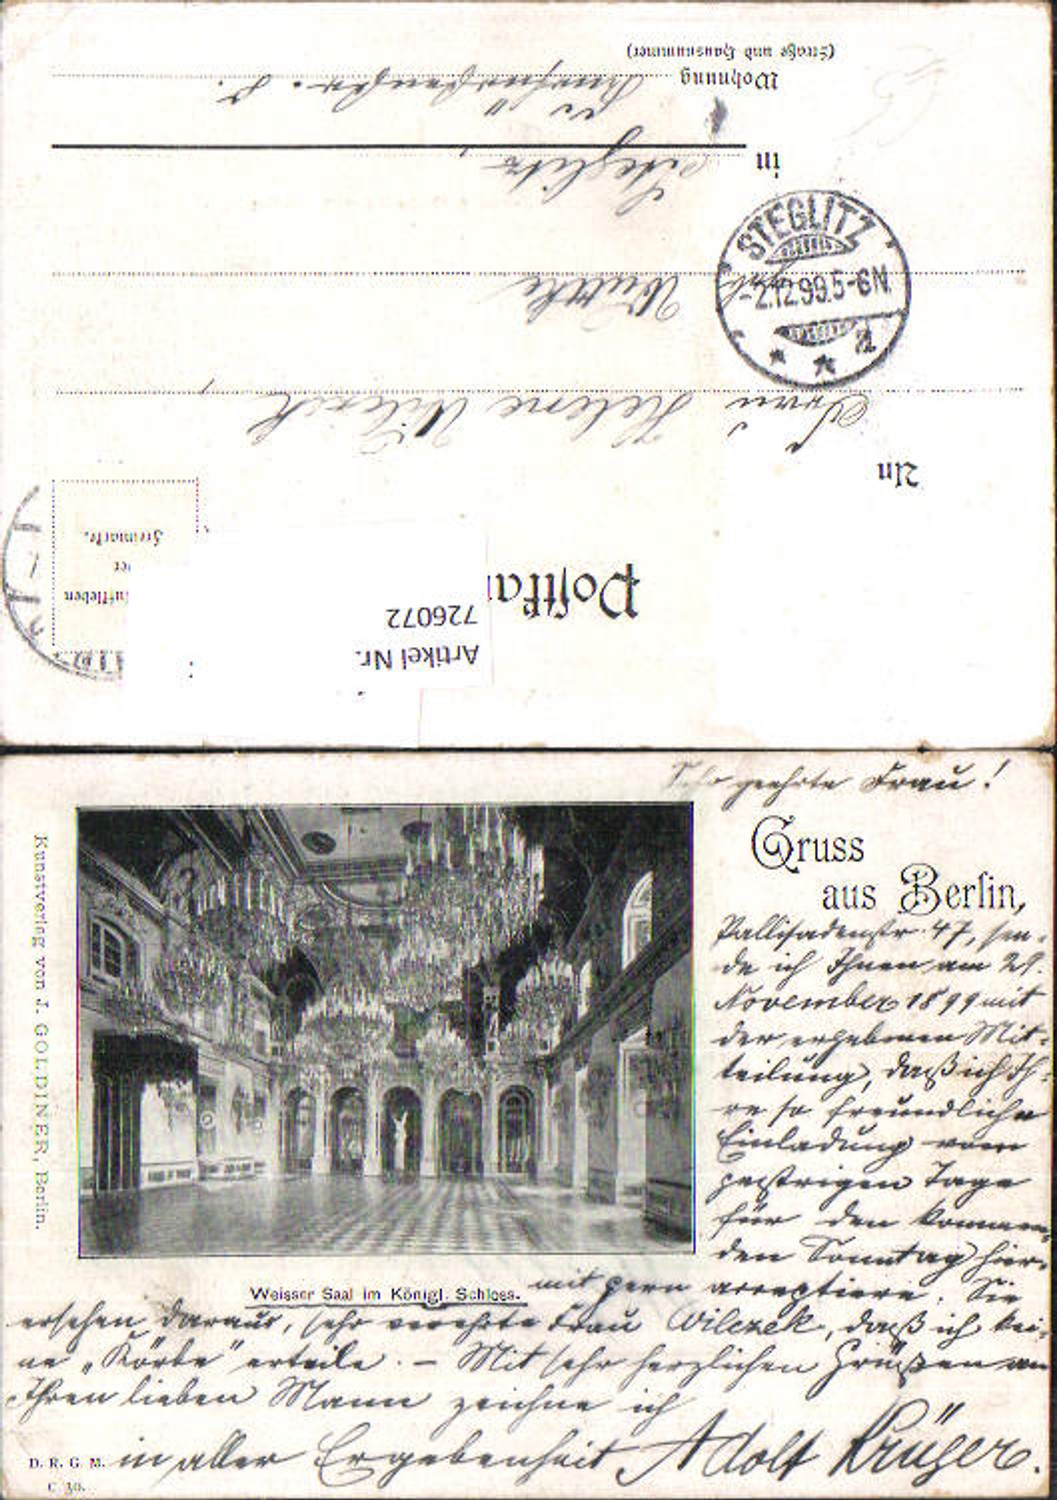 Postka
Artikel Nr.
726072
ufkleben
er
Freimarke.
An
Frau Helene Wilczek
STEGLITZ
-2.12.99.5-6N.
in Steglitz
Wohnung
(Straße und Hausnummer)
Sehr geehrte Frau!
Gruss
aus Berlin,
Pallisadenstr. 47, sen-
de ich Ihnen am 29.
November 1899 mit
der ergebenen Mit-
teilung, daß ich Ih-
re so freundliche
Einladung vom
gestrigen Tage
für den kommen-
den Sonntag hier-
mit gern acceptiere. Sie
Weisser Saal im Königl. Schloss.
ersehen daraus, sehr verehrte Frau Wilczek, daß ich kei-
ne „Körbe“ erteile. – Mit sehr herzlichen Grüßen an
Ihren lieben Mann zeichne ich
in aller Ergebenheit Adolf Krüger.
D. R. G. M.
C. 30.
Kunstverlag von J. GOLDINER, Berlin.